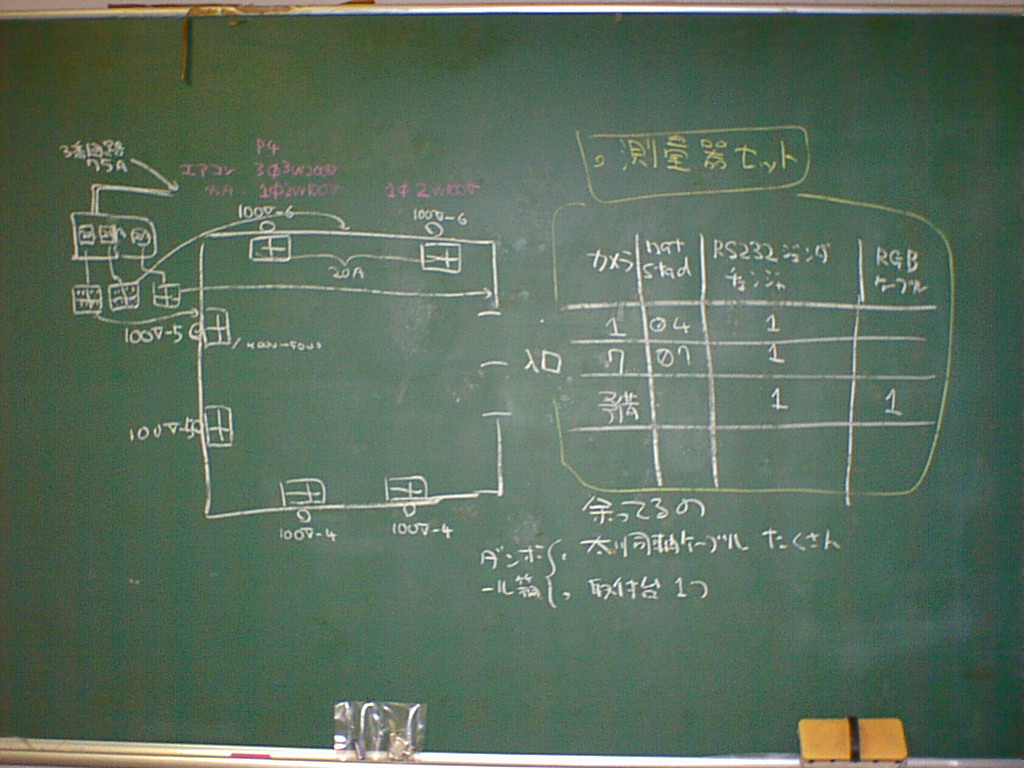 3系統回路
75A
P4
エアコン 3Φ3W200V
75A 1Φ2W100V
1Φ2W100V
100V-6
100V-6
20A
100V-5
100V-5
100V-4
100V-4
入口
測量器セット
カメラ
stad
RS232ジェンダ
チェンジャ
RGB
ケーブル
1 04 1
7 07 1
予備 1 1
余ってるの
ダンボ
ール箱
太い同軸ケーブル たくさん
取付台 1つ